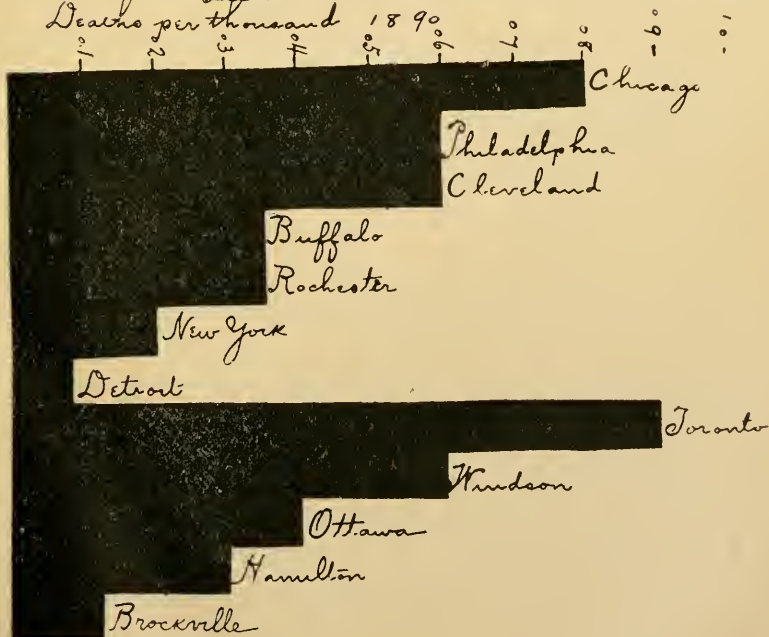 Deaths per thousand 1890
0.1 0.2 0.3 0.4 0.5 0.6 0.7 0.8 0.9 1.0
Chicago
Philadelphia
Cleveland
Buffalo
Rochester
New York
Detroit
Toronto
Windson
Ottawa
Hamilton
Brockville